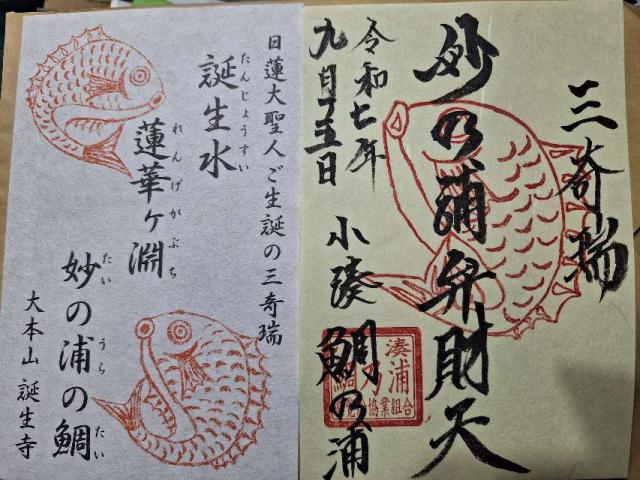 三奇瑞
妙乃浦弁財天
令和七年
九月十五日
小湊 鯛乃浦
湊
浦
協業組合
日蓮大聖人ご生誕の三奇瑞
たんじょうすい
誕生水
れんげがぶち
蓮華ヶ淵
たい うら たい
妙の浦の鯛
大本山 誕生寺